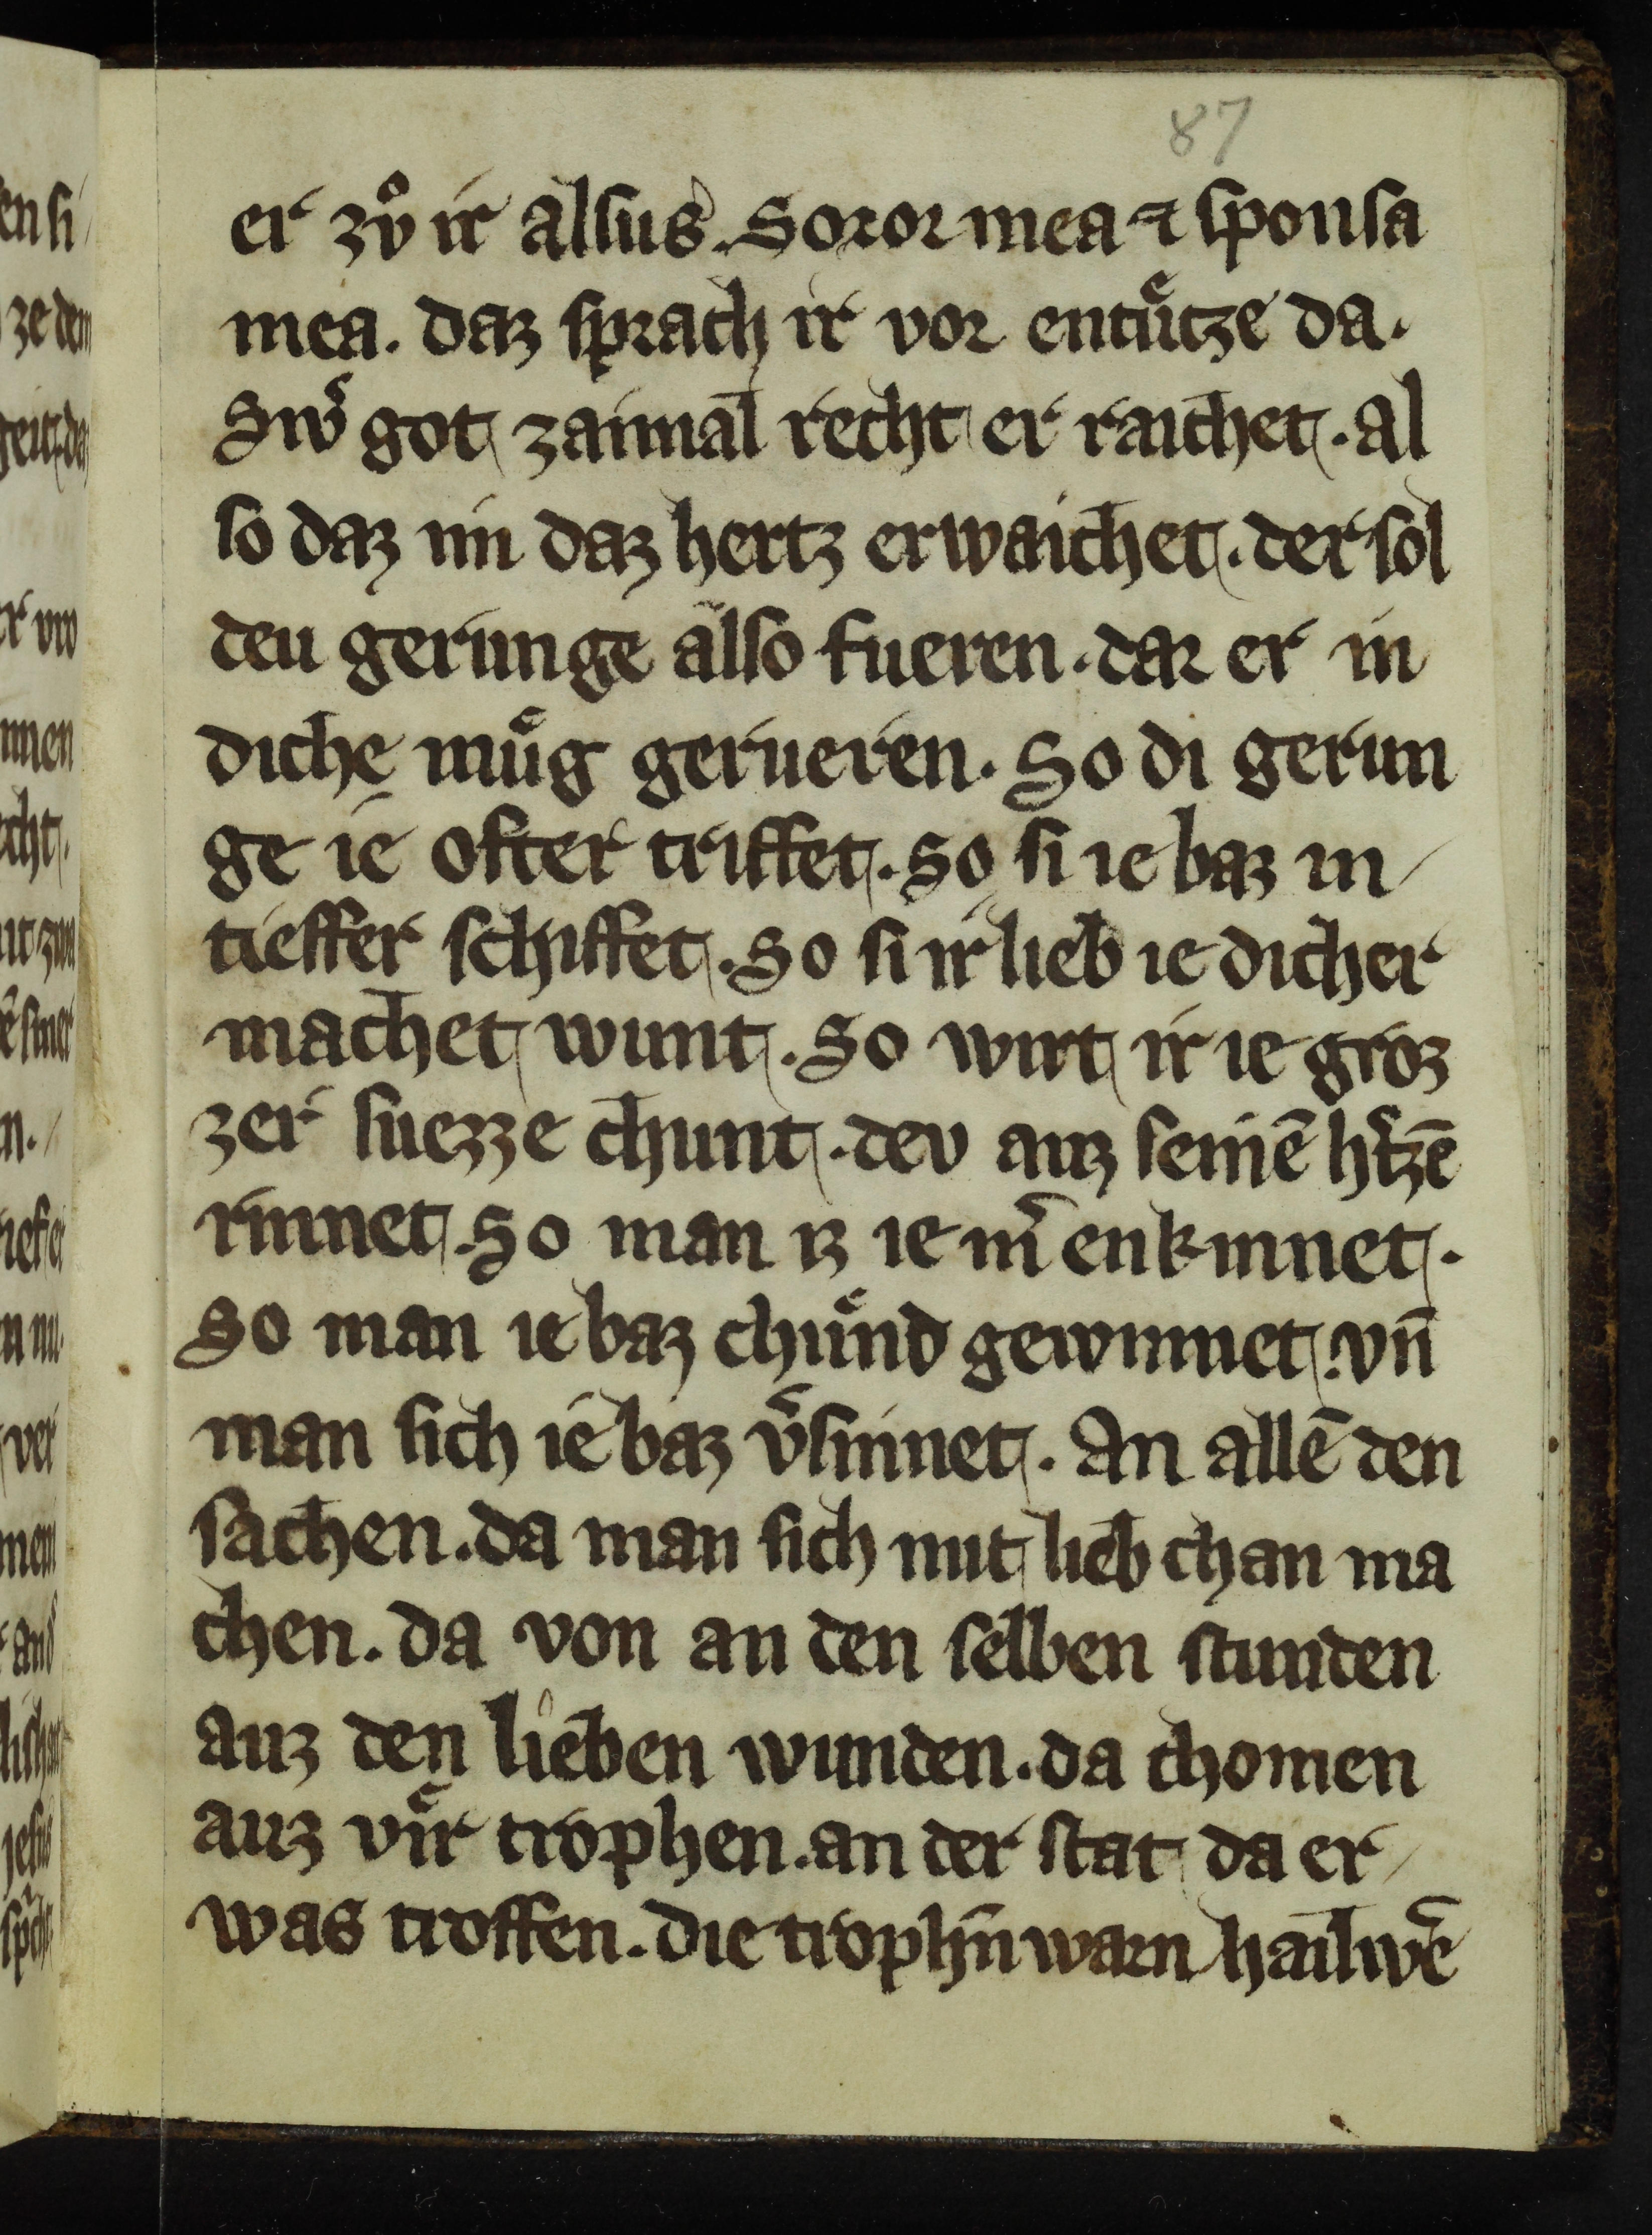 87
er zvͦ ir alsus. Soror mea ⁊ sponsa
mea. daz sprach ir vor entuͤtze da.
Swˢ got zaimal recht er raichet. al
so daz im daz hertz erwaichet. der sol
deu gerunge also fueren. daz er in
diche muͤg gerueren. So di gerun
ge ie ofter triffet. So si ie baz in
tieffer schiffet. So si ir lieb ie dicher
machet wunt. So wirt ir ie groz
zer suezze chunt. dev auz seinē hˢtzē
rinnet. So man iz ie mˢ enkinnet.
So man ie baz chuͤnd gewinnet. vn̄
man sich ie baz vˢsinnet. An allē den
sachen. da man sich mit lieb chan ma
chen. da von an den selben stunden
auz den lieben wunden. da chomen
auz viͤr trophen. an der stat da er
was troffen. die trophn̄ warn hailwē